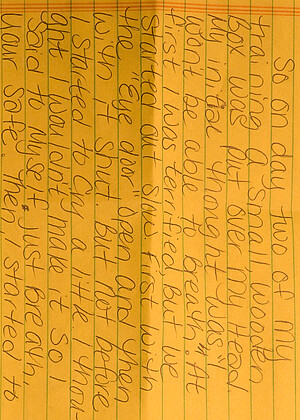 So on day two of my
training a small, wooden
box was put over my head
My intial thought was "I
wont be able to breath". At
first I was terrified, but we
started out slow first with
the "Eye door" open and then
with it shut. But not before
I started to cry a litle I thou-
ght I wouldn't make it so I
said to myself, just breath,
your safe. Then I started to